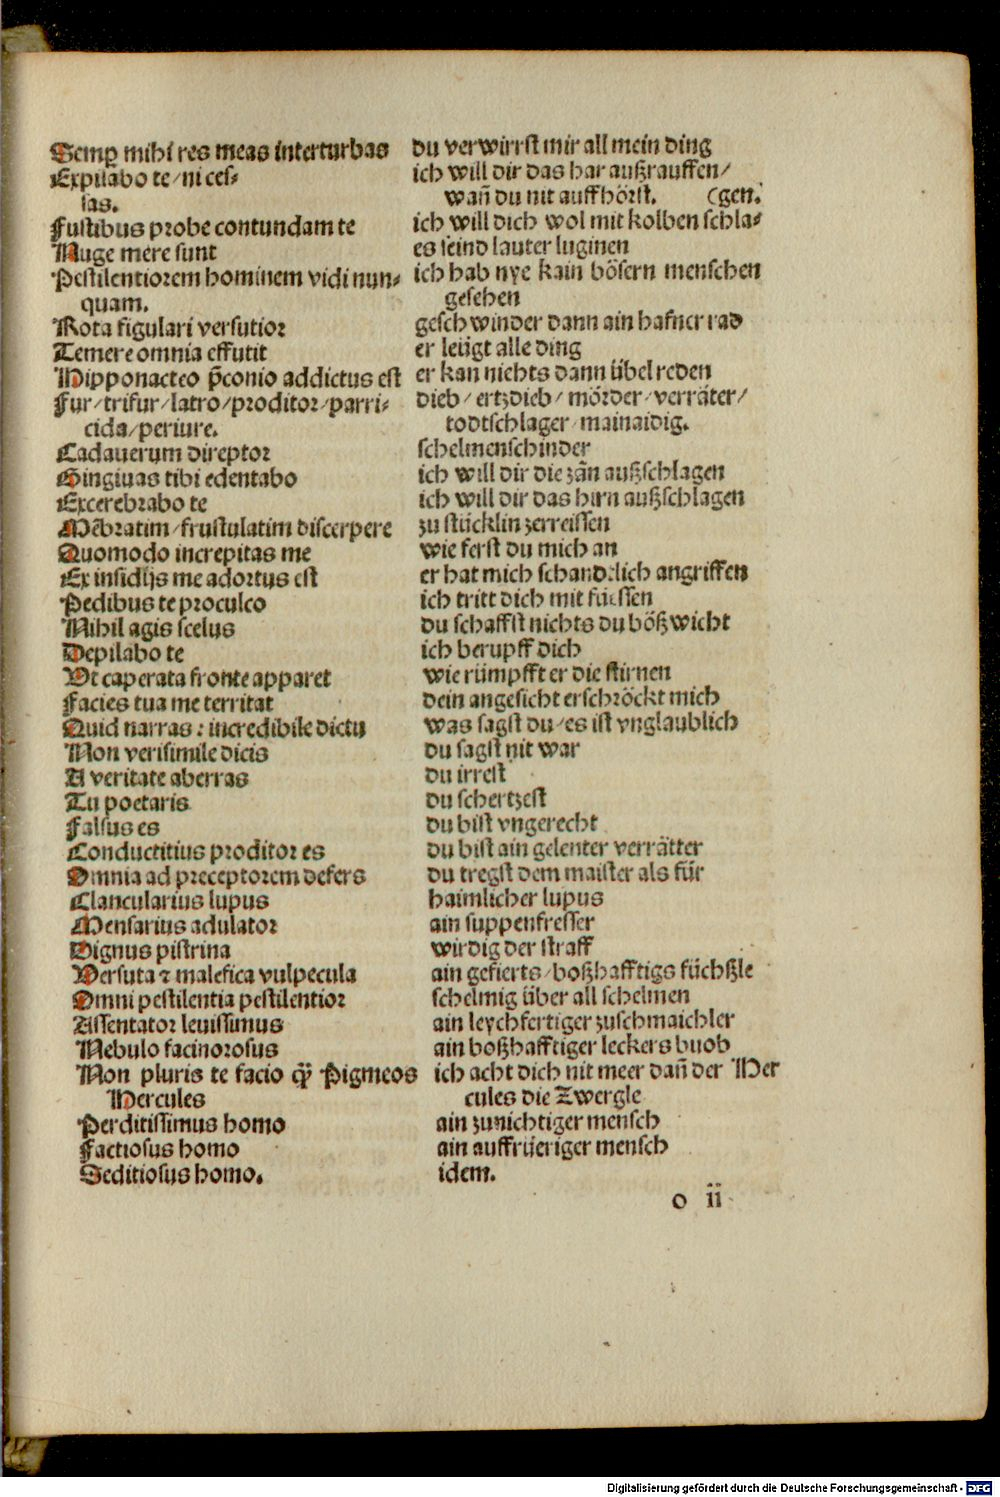 Semꝑ mihi res meas interturbas
Expilabo te/ni ces⸗
sas.
Fustibus probe contundam te
Nuge mere sunt
Pestilentiorem hominem vidi nun⸗
quam.
Rota figulari versutior
Temere omnia effutit
Hipponacteo p̄conio addictus est
Fur/trifur/latro/proditor/parri⸗
cida/periure.
Cadauerum direptor
Gingiuas tibi edentabo
Excerebrabo te
Mēbratim/frustulatim discerpere
Quomodo increpitas me
Ex insidijs me adortus est
Pedibus te proculco
Nihil agis scelus
Depilabo te
Vt caperata fronte apparet
Facies tua me territat
Quid narras: incredibile dictu
Non verisimile dicis
A veritate aberras
Tu poetaris
Falsus es
Conductitius proditor es
Omnia ad preceptorem defers
Clancularius lupus
Mensarius adulator
Dignus pistrina
Versuta ⁊ malefica vulpecula
Omni pestilentia pestilentior
Assentator leuissimus
Nebulo facinorosus
Non pluris te facio q̄ꝫ Pigmeos
Hercules
Perditissimus homo
Factiosus homo
Seditiosus homo.
du verwirrst mir all mein ding
ich will dir das har außrauffen/
wañ du nit auffhörst. (gen.
ich will dich wol mit kolben schla⸗
es seind lauter luginen
ich hab nye kain bösern menschen
gesehen
geschwinder dann ain hafner rad
er leügt alle ding
er kan nichts dann übel reden
dieb/ertzdieb/mörder/verräter/
todtschlager/mainaidig.
schelmenschinder
ich will dir die zän außschlagen
ich will dir das hirn außschlagen
zu stücklin zerreissen
wie ferst du mich an
er hat mich schandtlich angriffen
ich tritt dich mit füessen
du schaffst nichts du bößwicht
ich berupff dich
wie rümpfft er die stirnen
dein angesicht erschröckt mich
was sagst du/es ist vnglaublich
du sagst nit war
du irrest
du schertzest
du bist vngerecht
du bist ain gelenter verrätter
du tregst dem maister als für
haimlicher lupus
ain suppenfresser
wirdig der straff
ain gefierts/boßhafftigs füchßle
schelmig über all schelmen
ain leychfertiger zuschmaichler
ain boßhafftiger leckers buob
ich acht dich nit meer dañ der Her
cules die Zwergle
ain zunichtiger mensch
ain auffrüeriger mensch
idem.
o ii
Digitalisierung gefördert durch die Deutsche Forschungsgemeinschaft - DFG